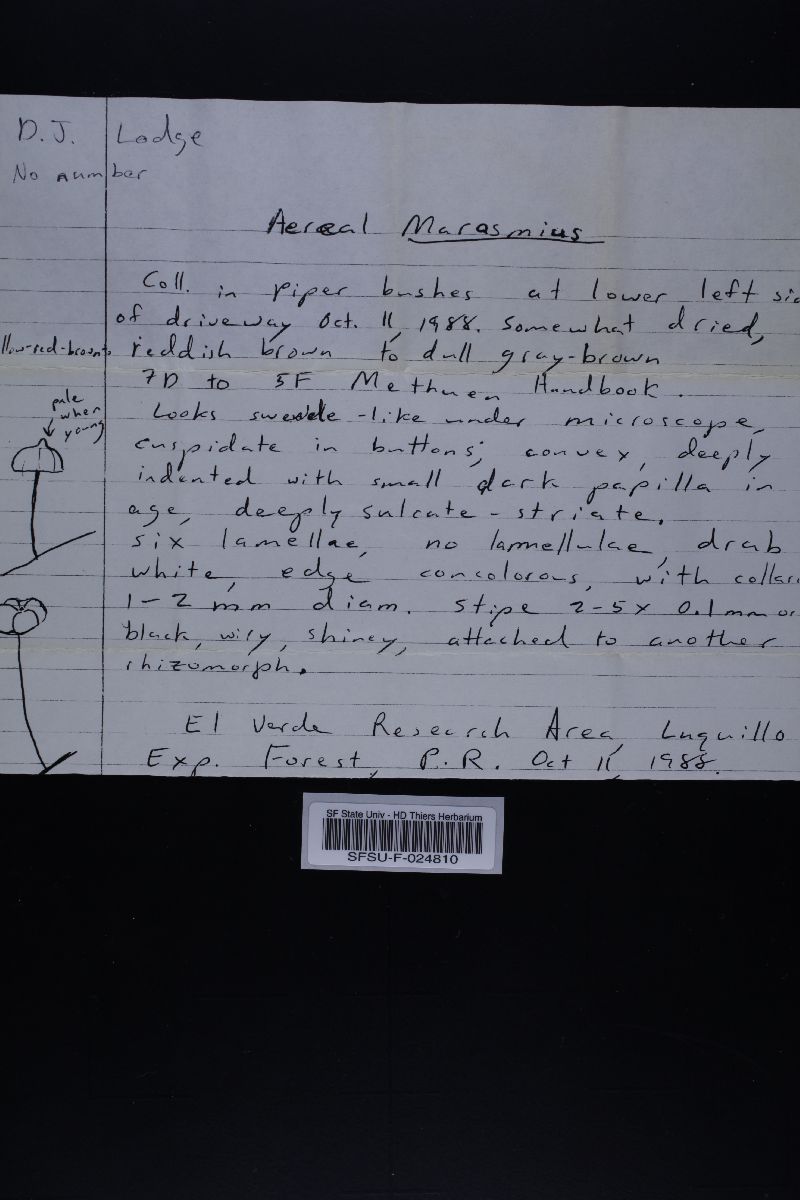 D.J. Lodge
No number
Aereal Marasmius
Coll. in Piper bushes at lower left sid
of driveway Oct. 11, 1988. Somewhat dried,
llow-red-brown to reddish brown to dull gray-brown
7D to 5F Methuen Handbook.
pale
when
young
Looks suede-like under microscope,
cuspidate in buttons; convex, deeply
indented with small dark papilla in
age, deeply sulcate-striate.
six lamellae, no lamellulae, drab
white, edge concolorous, with collar
1-2 mm diam. Stipe 2-5 x 0.1 mm or
black, wiry, shiney, attached to another
rhizomorph.
El Verde Research Area, Luquillo
Exp. Forest, P.R. Oct 11, 1988.
SF State Univ - HD Thiers Herbarium
SFSU-F-024810